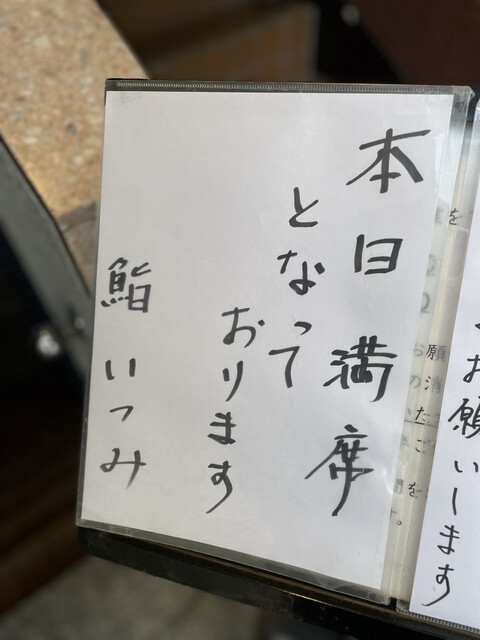 本日満席
となって
おります
鮨 いつみ
お願いします